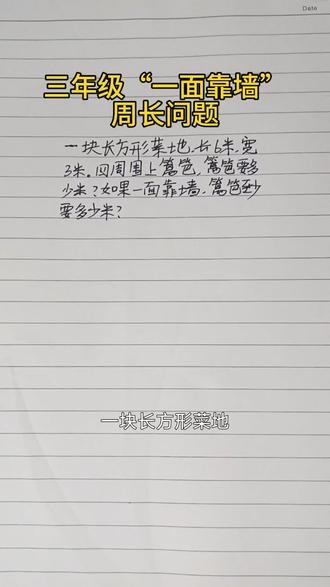 Date
三年级“一面靠墙”
周长问题
一块长方形菜地,长6米,宽
3米。四周围上篱笆,篱笆要多
少米?如果一面靠墙,篱笆至少
要多少米?
一块长方形菜地